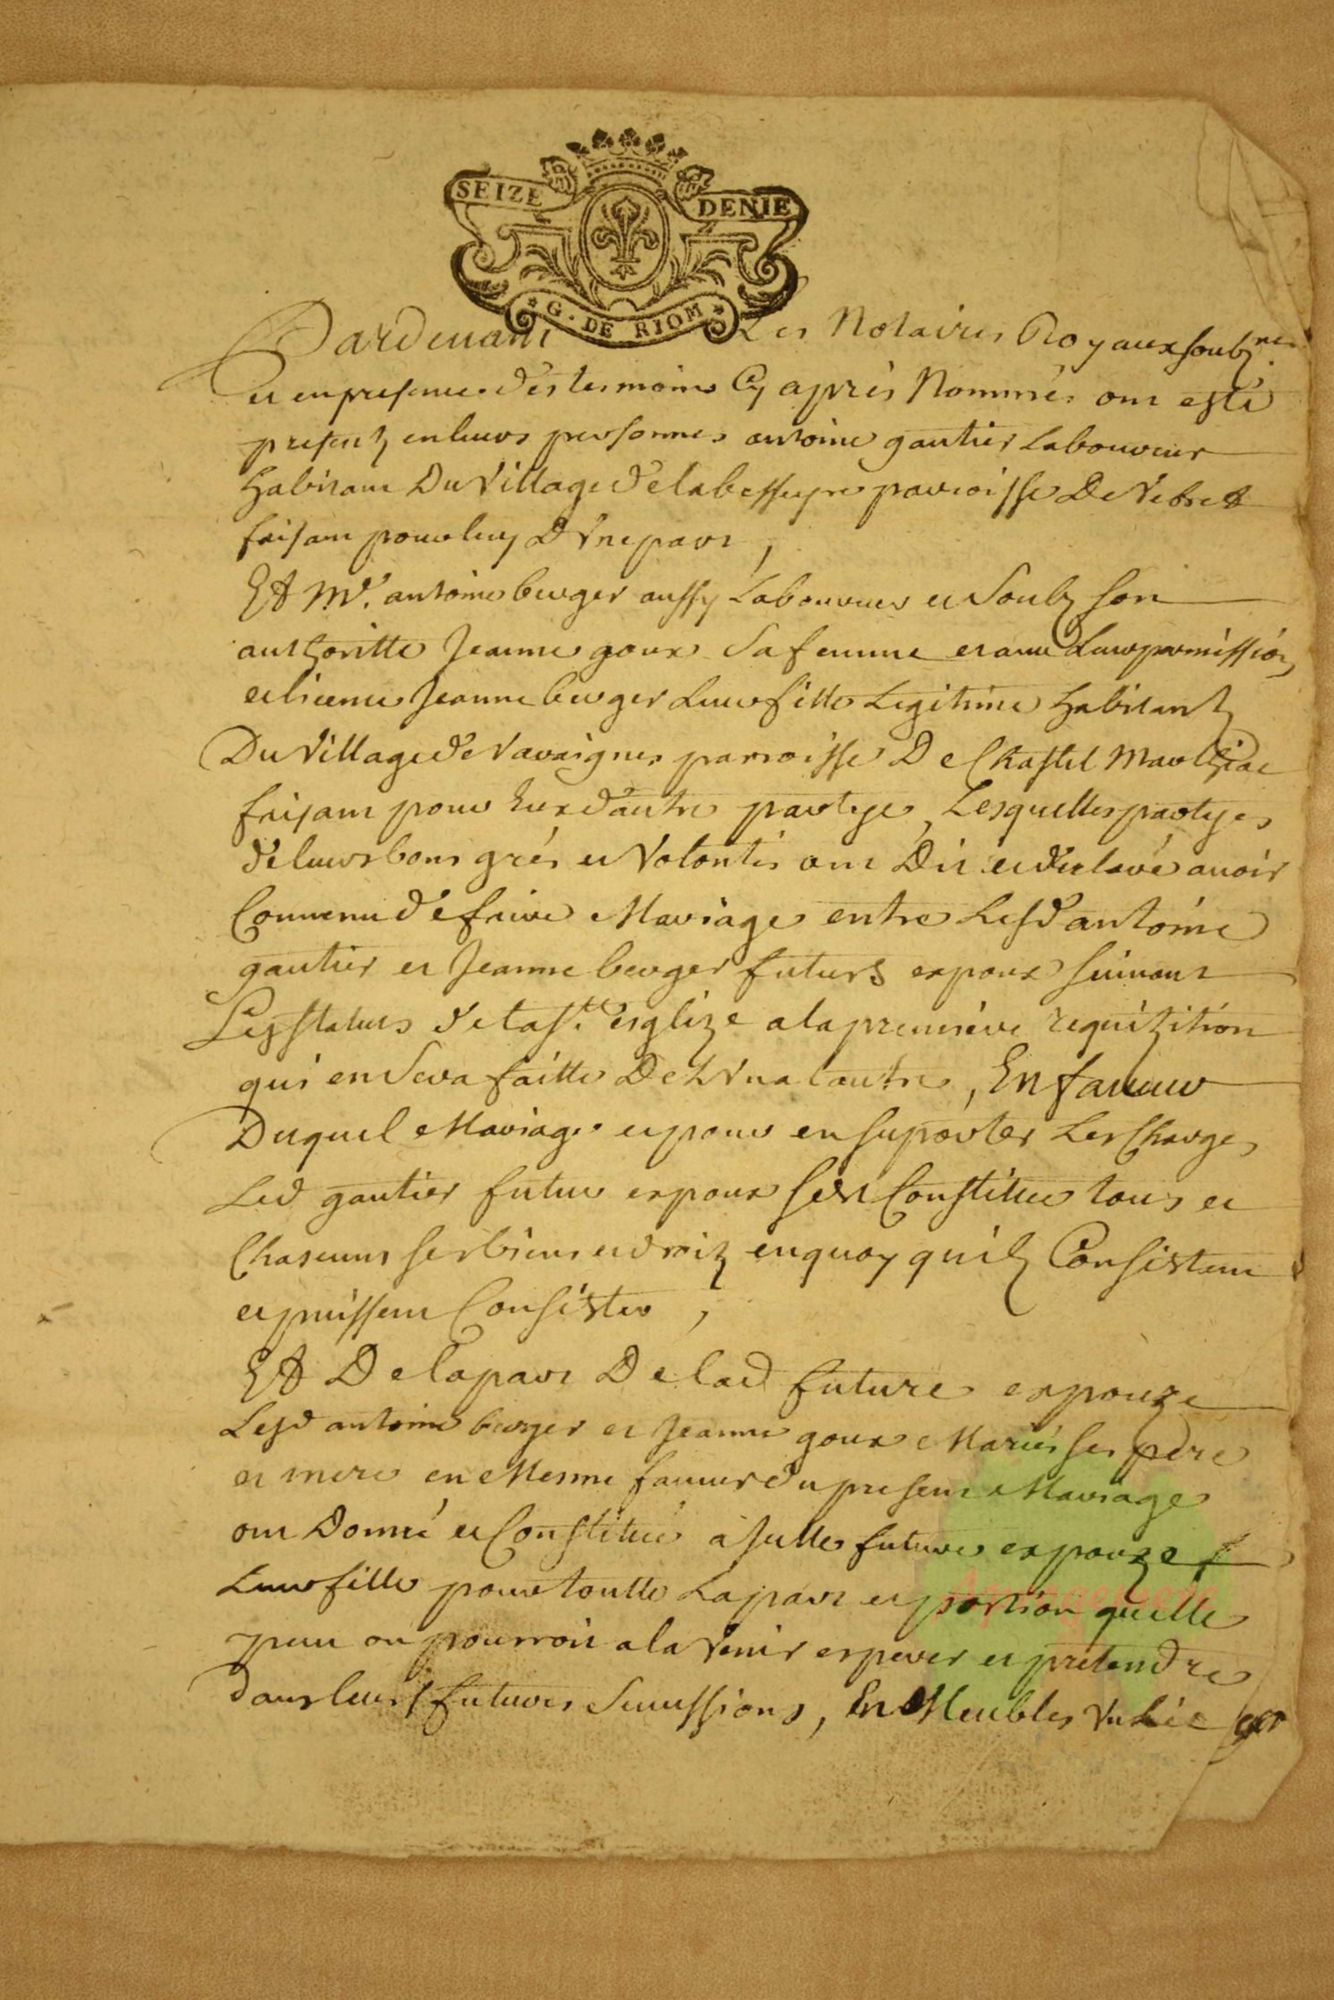 SEIZE DENIE
G. DE RIOM
Pardevant Les Notaires Royaux soubznes
et en presence des tesmoins Cy apres Nommés ont esté
presentz en leurs personnes antoine gautier Laboureur
habitant Du Village de labesseyre parroisse De Vebret
faisant pour luy D Vne part,
Et Me. antoine berger aussy Laboureur et Soubz son
authoritte Jeanne goux Sa femme et avec Leur permission
et licence Jeanne berger Leur fille Legitime habitantz
Du Village de Vavaignes parroisse De Chastel Marlhiac
faisant pour Eux d'autre partye, Lesquelles partyes
de leurs bons grés et Volontés ont Dit et declaré avoir
Convenu de faire Mariage entre Lesd antoine
gautier et Jeanne berger futurs expoux suivant
Les statuts de la Ste esglize a la premiere requizition
qui en Sera faitte De L Vn a l autre, En faveur
Duquel Mariage et pour en suporter Les Charges
Led gautier futur expoux sest Constitué tous et
Chascuns ses biens et droitz en quoy quilz Consistent
et puissent Consister,
Et De la part De lad future expouze
Lesd antoine berger et Jeanne goux Mariés ses pere
et mere en Mesme faveur du present Mariage
ont Donné et Constitué a jcelle future expouze
Leur fille pour toutte La part et portion quelle
peut ou pourroit a l a Venir esperer et pretendre
dans leurs futures Successions, En Meubles Vn Lit